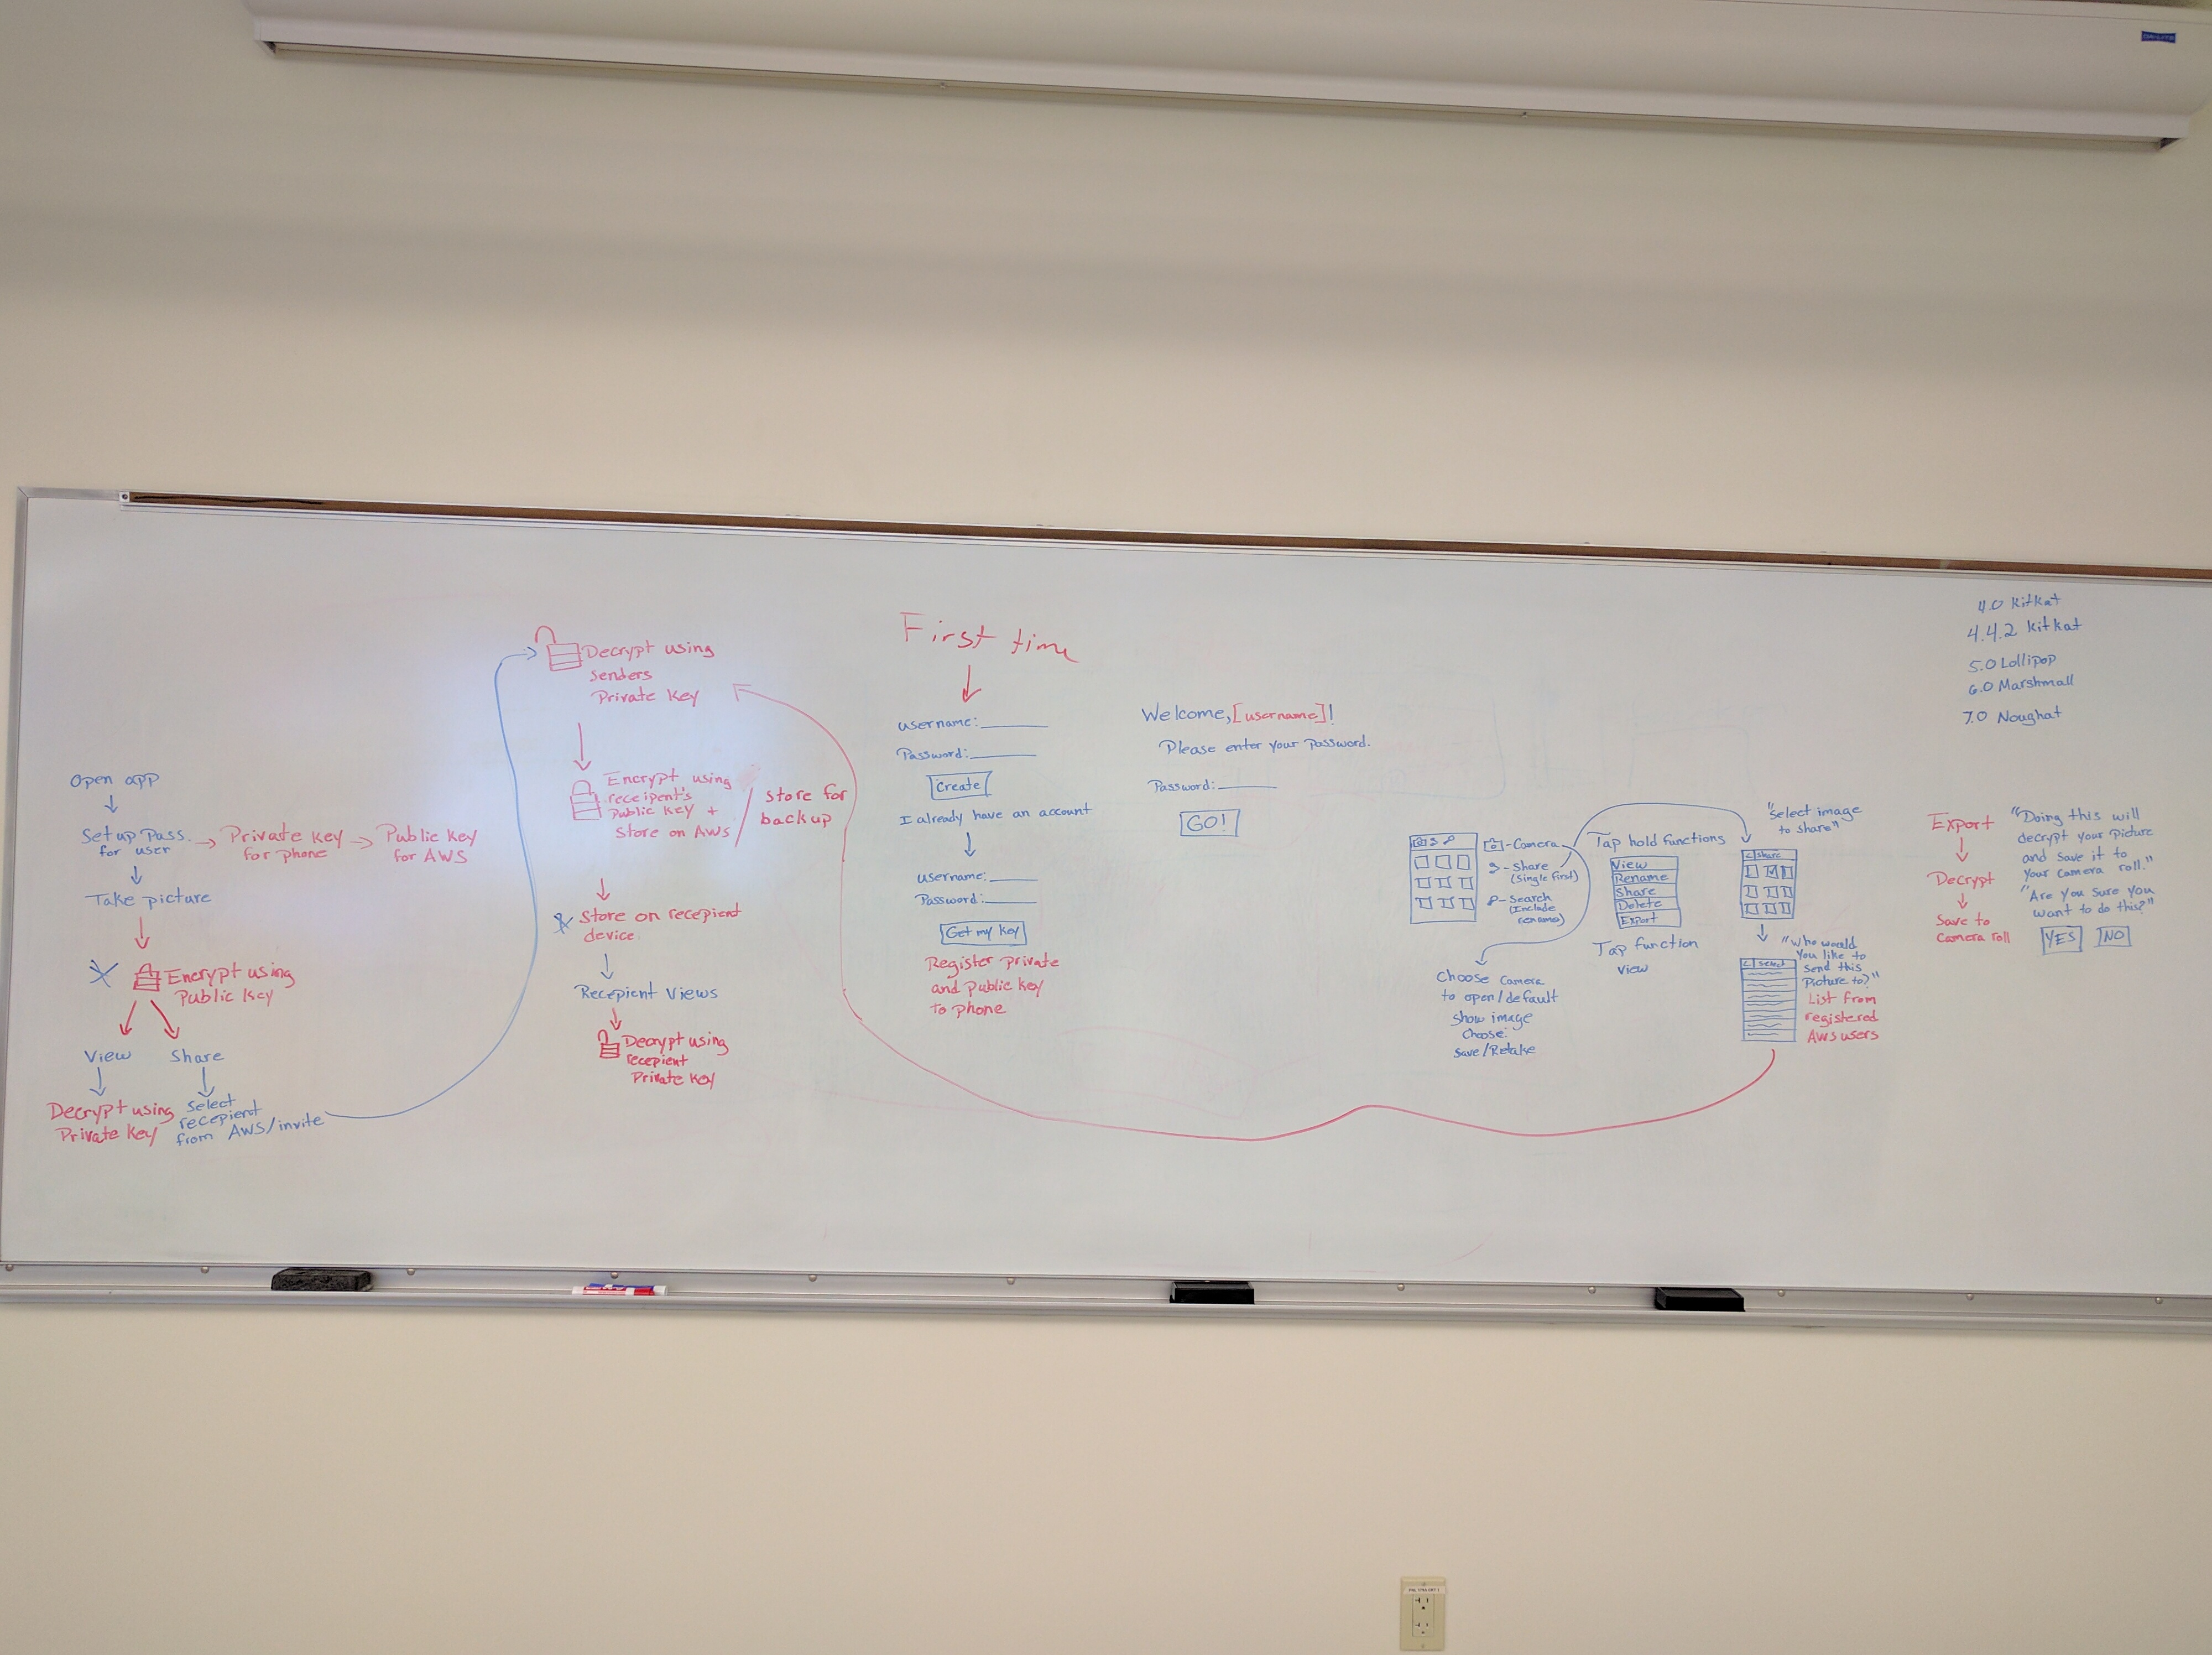 DA-LITE
Open app
Set up Pass.
for user
Private Key
for phone
Public Key
for AWS
Take picture
Encrypt using
Public Key
View
Share
Decrypt using
Private Key
Select
recepient
from AWS/invite
Decrypt using
senders
Private Key
Encrypt using
receipent's
Public Key +
Store on AWS
Store for
backup
Store on recepient
device
Recepient Views
Decrypt using
recepient
Private Key
First time
username:
Password:
Create
I already have an account
username:
Password:
Get my Key
Register private
and public key
to phone
Welcome, [username]!
Please enter your password.
Password:
GO!
- Camera
- Share
(Single First)
- Search
(Include
renames)
Choose Camera
to open/default
Show image
Choose:
Save/Retake
Tap hold functions
View
Rename
Share
Delete
Export
Tap function
View
"Select image
to share"
< Share
"Who would
you like to
send this
Picture to?"
< Select
List from
registered
AWS users
4.0 Kitkat
4.4.2 Kitkat
5.0 Lollipop
6.0 Marshmall
7.0 Noughat
Export
Decrypt
Save to
Camera roll
"Doing this will
decrypt your picture
and save it to
your camera roll."
"Are you sure you
want to do this?"
YES
NO